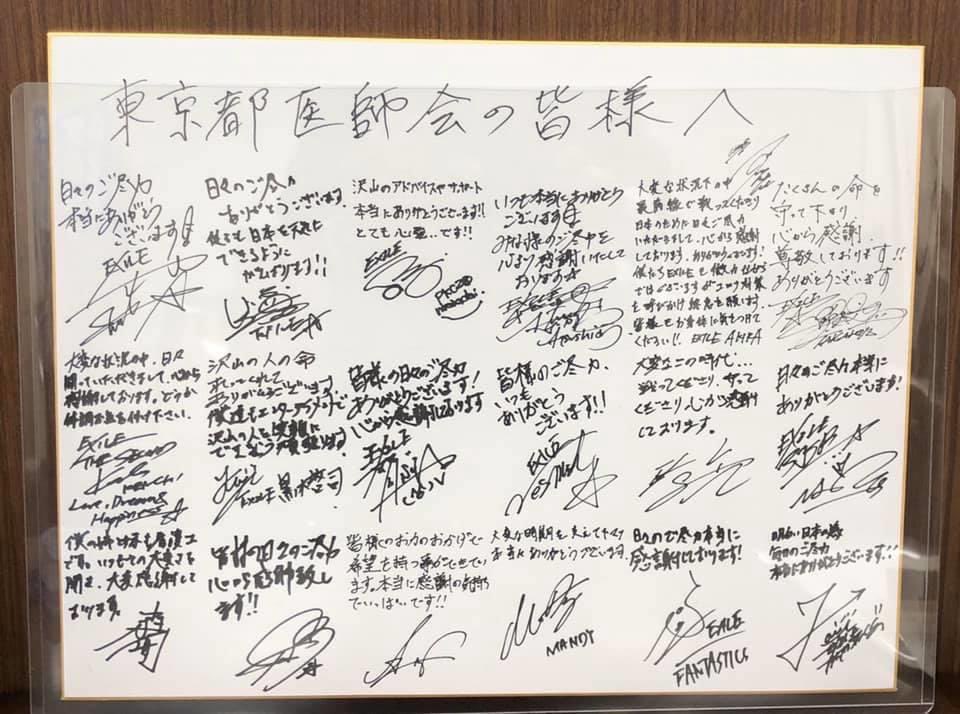 東京都医師会の皆様へ
日々のご尽力
本当にありがとう
ございます!!
EXILE
日々のご尽力
ありがとうございます
僕らも日本を元気に
できるように
がんばります!!
沢山のアドバイスやサポート
本当にありがとうございます!!
とても心強いです!!
EXILE
いつも本当にありがとう
ございます!!
みな様のご尽力を
心より感謝いたして
おります
EXILE
大変な状況下の中
最前線で戦ってくださり
日本のために日々ご尽力
いただきまして、心から感謝
しております。ありがとうございます!
僕たちEXILEも微力ながら
ではございますがコロナ対策
を呼びかけ続けて願います。
皆様もお身体に気をつけて
ください!! EXILE AKIRA
たくさんの命を
守って下さり
心から感謝、
尊敬しております!!
ありがとうございます
EXILE
大変な状況の中、日々
闘っていただきまして、心から
感謝しております。どうか
お気を付け下さい。
EXILE
THE SECOND
KENCHI
Love, Dreams
Happiness
沢山の人の命
ありがとうございます!
僕達もエンターテイメントで
沢山の人を笑顔に
EXILE 黒木啓司
皆様の日々のご尽力
ありがとうございます!
いつも感謝しております
EXILE
皆様のご尽力、
いつも
ありがとう
ございます!!
EXILE
大変なこの時代…
戦ってくださり、守って
くださり心から感謝
しております。
日々のご尽力本当に
ありがとうございます!
EXILE
僕の姉と妹も看護士
です。いつもその大変さを
聞き、大変感謝して
おります。
皆様の日々のご尽力
心から感謝致し
ます!!
皆様のお力のおかげで
希望を持つ事ができてい
ます。本当に感謝の気持ち
でいっぱいです!!
大変な時期を支えて下さり
本当にありがとうございます。
MANDY
日々のご尽力本当に
感謝しております!
EXILE
FANTASTICS
明るい日本の為
毎日のご尽力
本当にありがとうございます!!